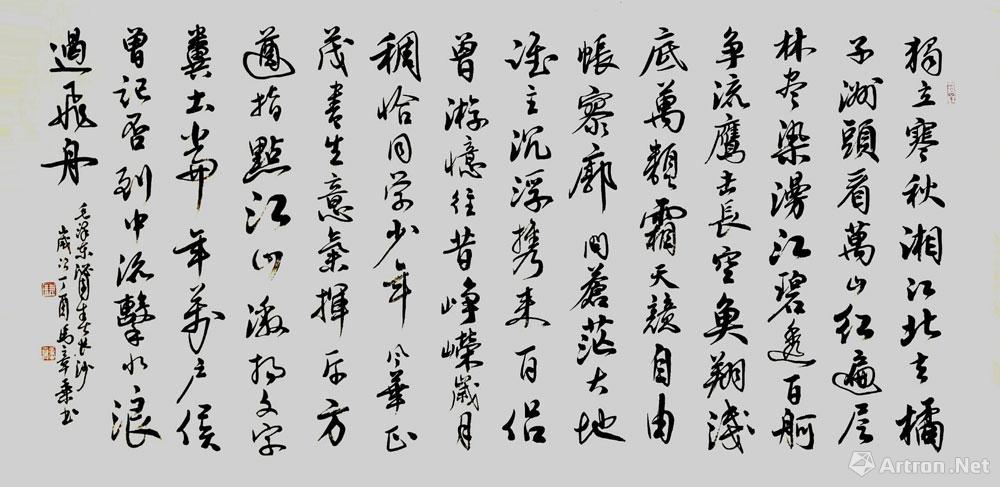 獨立寒秋湘江北去橘
子洲頭看萬山红遍层
林尽染漫江碧透百舸
争流鹰击長空魚翔淺
底萬類霜天競自由
悵寥廓問蒼茫大地
谁主沉浮携来百侣
曾游憶往昔崢嶸歲月
稠恰同学少年风華正
茂書生意氣揮斥方
遒指點江山激扬文字
糞土当年萬户侯
曾记否到中流擊水浪
遏飛舟
毛泽东沁园春长沙
歲次丁酉馬章乘书
Artron.Net